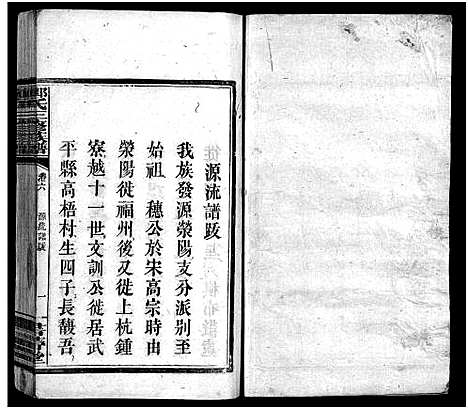 源流譜跋
我族發源滎陽支分派別至
始祖　穗公於宋高宗時由
滎陽徙福州後又徙上杭鍾
寮越十一世文訓公徙居武
平縣高梧村生四子長馥吾
氏三修族譜
卷六
源流譜跋
一